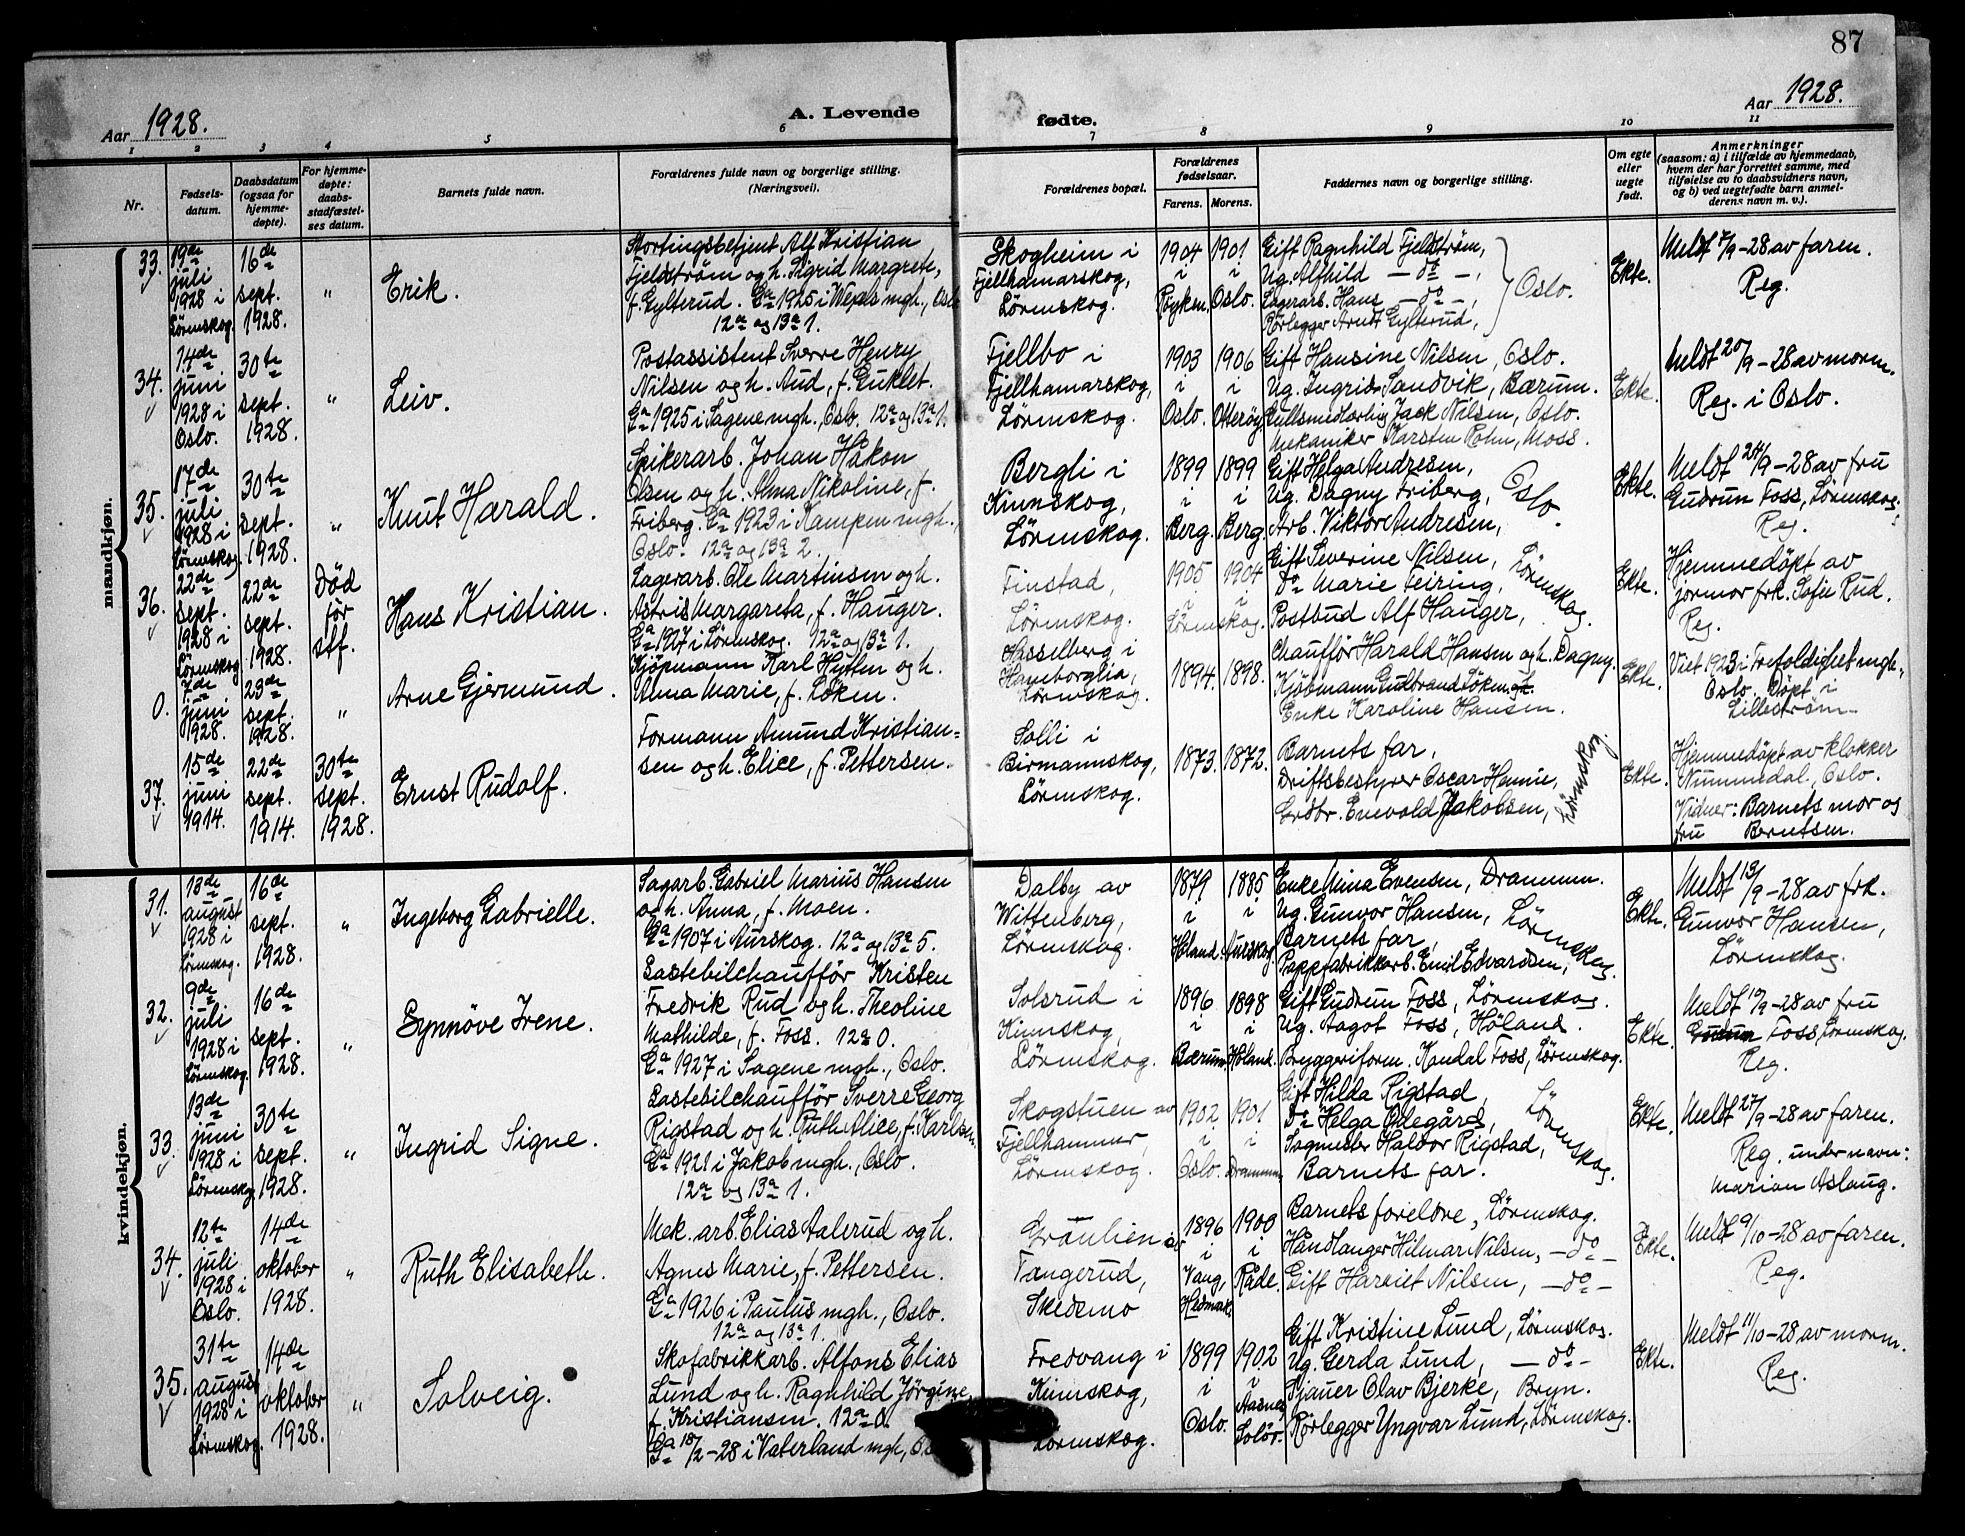 87
Aar 1928.
A. Levende
fødte.
Aar 1928.
1 2 3 4 5 6 7 8 9 10 11
Nr.
Fødsels-
datum.
Daabsdatum
(ogsaa for
hjemme-
døpte).
For hjemme-
døpte:
daabs-
stadfæstel-
ses datum.
Barnets fulde navn.
Forældrenes fulde navn og borgerlige stilling.
(Næringsvei).
Forældrenes bopæl.
Forældrenes
fødselsaar.
Farens. Morens.
Faddernes navn og borgerlige stilling.
Om egte
eller
uegte
født.
Anmerkninger
(saasom: a) i tilfælde av hjemmedaab,
hvem der har forrettet samme, med
tilføielse av to daabsvidners navn,
og b) ved uegtefødte barn anmel-
derens navn m. v.).
mandkjøn.
33.
19de
juli
1928 i
Lørenskog.
16de
sept.
1928.
"
Erik.
Stortingsbetjent Alf Kristian
Fjeldstrøm og h. Sigrid Margrete,
f. Gylterud. Ga 1925 i Wexels mgh., Oslo
12a og 13a 1.
Skogheim i
Fjellhamarskog,
Lørenskog.
1904
i
Røyken.
1901
i
Oslo.
Gift Ragnhild Fjeldstrøm,
Ug. Alfhild — do —,
Lagerarb. Hans — do —,
Rørlegger Arndt Gylterud,
Oslo.
Ekte.
Meldt 7/9-28 av faren.
Reg.
34.
14de
juni
1928 i
Oslo.
30te
sept.
1928.
"
Leiv.
Postassistent Sverre Henry
Nilsen og h. Aud, f. Guklet.
Ga 1925 i Sagene mgh., Oslo. 12a og 13a 1.
Fjellbo i
Fjellhamarskog,
Lørenskog.
1903
i
Oslo.
1906
i
Otterøy.
Gift Hansine Nilsen, Oslo.
Ug. Ingrid Sandvik, Bærum.
Gullsmedlærling Jack Nilsen, Oslo.
Mekaniker Karsten Rohn, Moss.
Ekte.
Meldt 20/9-28 av moren.
Reg. i Oslo.
35.
17de
juli
1928 i
Lørenskog.
30te
sept.
1928.
"
Knut Harald.
Spikerarb. Johan Håkon
Olsen og h. Alma Nikoline, f.
Friberg. Ga 1923 i Kampen mgh.,
Oslo. 12a og 13a 2.
Bergli i
Kinnskog,
Lørenskog.
1899
i
Berg.
1899
i
Berg.
Gift Helga Andresen,
Ug. Dagny Friberg,
Arb. Viktor Andresen,
Oslo.
Ekte.
Meldt 24/9-28 av fru
Gudrun Foss, Lørenskog.
Reg.
36.
22de
sept.
1928 i
Lørenskog.
22de
sept.
1928.
Død
før
stf.
Hans Kristian.
Lagerarb. Ole Martinsen og h.
Astrid Margareta, f. Hauger.
Ga 1927 i Lørenskog. 12a og 13a 1.
Finstad,
Lørenskog.
1905
1904
i
Lørenskog.
Gift Severine Nilsen,
Do Marie Feiring,
Postbud Alf Hauger,
Lørenskog.
Ekte.
Hjemmedøpt av
jormor frk. Sofie Rud.
Reg.
0.
7de
juni
1928.
23de
sept.
1928.
"
Arne Gjermund.
Kjøpmann Karl Hytten og h.
Anna Marie, f. Løken.
Hasselberg i
Hamborglia,
Lørenskog.
1894.
1898.
Chauffør Harald Hansen og h. Dagny.
Kjøbmann Gudbrand Løken og h.
Enke Karoline Hansen.
Ekte.
Viet 1923 i Trefoldighet mgh.,
Oslo. Døpt i
Lillestrøm.
37.
15de
juni
1914.
22de
sept.
1914.
30te
sept.
1928.
Ernst Rudolf.
Formann Amund Kristian=
sen og h. Elice, f. Pettersen.
Solli i
Birmannskog,
Lørenskog.
1873.
1872.
Barnets far,
Driftsbestyrer Oscar Hennie,
Grdbr. Enevold Jakobsen,
Lørenskog.
Ekte.
Hjemmedøpt av klokker
Nummedal, Oslo.
Vidner: Barnets mor og
fru Berntsen.
kvindekjøn.
31.
13de
august
1928 i
Lørenskog.
16de
sept.
1928.
"
Ingeborg Gabrielle.
Sagarb. Gabriel Marius Hansen
og h. Anna, f. Moen.
Ga 1907 i Aurskog. 12a og 13a 5.
Dalby av
Wittenberg,
Lørenskog.
1879
i
Høland.
1885
i
Aurskog.
Enke Mina Evensen, Drammen.
Ug. Gunvor Hansen,
Barnets far,
Pappfabrikkarb. Emil Edvardsen,
Lørenskog.
Ekte.
Meldt 13/9-28 av frk.
Gunvor Hansen,
Lørenskog.
32.
9de
juli
1928 i
Lørenskog.
16de
sept.
1928.
"
Synnøve Irene.
Lastebilchauffør Kristen
Fredrik Rud og h. Theoline
Mathilde, f. Foss. 12a 0.
Ga 1927 i Sagene mgh., Oslo.
Solsrud i
Kinnskog,
Lørenskog.
1896
i
Bærum.
1898
i
Høland.
Gift Gudrun Foss, Lørenskog.
Ug. Aagot Foss, Høland.
Bryggeriform. Kandal Foss, Lørenskog.
Ekte.
Meldt 10/9-28 av fru
Gudrun Foss, Lørenskog.
Reg.
33.
13de
juni
1928 i
Lørenskog.
30te
sept.
1928.
"
Ingrid Signe.
Lastebilchauffør Sverre Georg
Rigstad og h. Ruth Alice, f. Karlsen,
Ga 1921 i Jakob mgh., Oslo.
12a og 13a 1.
Skogstuen av
Fjellhammer,
Lørenskog.
1902
i
Oslo.
1901
i
Drammen.
Gift Hilda Rigstad,
Do Helga Ødegård,
Sagmester Haldor Rigstad,
Barnets far.
Lørenskog.
Ekte.
Meldt 27/9-28 av faren.
Reg. under navn:
Marion Aslaug.
34.
12te
juli
1928 i
Oslo.
14de
oktober
1928.
"
Ruth Elisabeth.
Mek. arb. Elias Aalerud og h.
Agnes Marie, f. Pettersen.
Ga 1926 i Paulus mgh., Oslo.
12a og 13a 1.
Grånlien av
Tangerud,
Skedsmo
1896
i
Vang,
Hedmark.
1900
i
Råde.
Barnets foreldre, Lørenskog.
Håndlanger Hilmar Nilsen, — do —
Gift Harriet Nilsen, — do —
Ekte.
Meldt 9/10-28 av faren.
Reg.
35.
31te
august
1928 i
Lørenskog.
14de
oktober
1928.
"
Solveig.
Skofabrikkarb. Alfons Elias
Lund og h. Ragnhild Jørgine,
f. Kristiansen. 12a 0.
Ga 18/2-28 i Vaterland mgh.,
Fredvang i
Kinnskog,
Lørenskog.
1899
i
Oslo.
1902
i
Aasnes
Solør.
Gift Kristine Lund, Lørenskog.
Ug. Gerda Lund, — do —
Sjauer Olav Bjerke, Bryn.
Rørlegger Yngvar Lund, Lørenskog.
Ekte.
Meldt 11/10-28 av moren.
Reg.